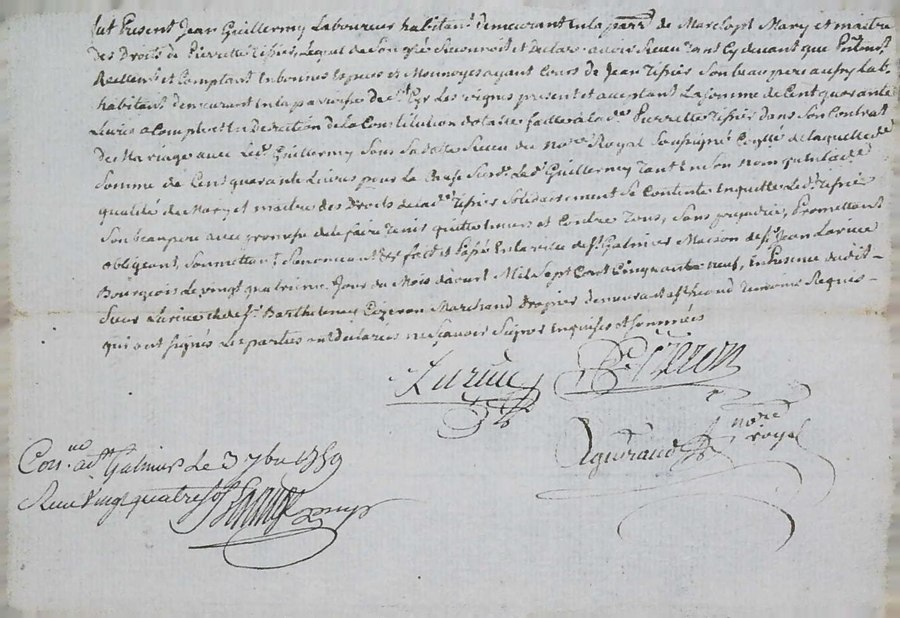 fut Present Jean Guillermy Laboureur habitant demeurant en la parr.e de Marclopt Mary et maitre
des Droits de Pierrette Tissier Lequel de son gré Reconnoit et Declare avoir Receu tant Cy devant que
Reellem.t et Comptant En bonnes Especes et Monnoyes ayant Cours de Jean Tissier Son beaupere aussy Lab.
habitant demeurant en la parroisse de S.t Cyr Les vignes present et acceptant La somme de Cent quarante
Livres a Compte et En Deduction de la Constitution dotalle faitte a lad.e Pierrette Tissier dans Son Contrat
de Mariage avec Led. Guillermy Sous Sa datte Receu du no.re Royal Soussigné de laquelle
Somme de Cent quarante Livres pour La Cause Susd. Led. Guillermy Tant En Son Nom qu'en lad.e
qualité de Mary et maitre des Droits de lad.e Tissier Solidairement Se Contente Enquitte Led. Tissier
Son beaupere avec promesse de le faire Tenir quitte Envers et Contre Tous, Sans prejudice, Promettant
obligeant, Soumettant Renoncant &c fait et Passé En la ville de S.t Galmier Maison de S.r Jean Larive
Bourgeois Le vingt quatrieme Jour du Mois d'aoust Mil Sept Cent Cinquante neuf, En Presence dudit
Sieur Larive et de S.r Barthelemy Cizeron Marchand Second Temoins Requis
qui ont signés Les parties ont declarées ne Scavoir Signer Enquises et Sommées
Larive
Cizeron
no.re royal
Con.lle a S.t Galmier Le 3 7bre 1759
Receu vingt quatre sols